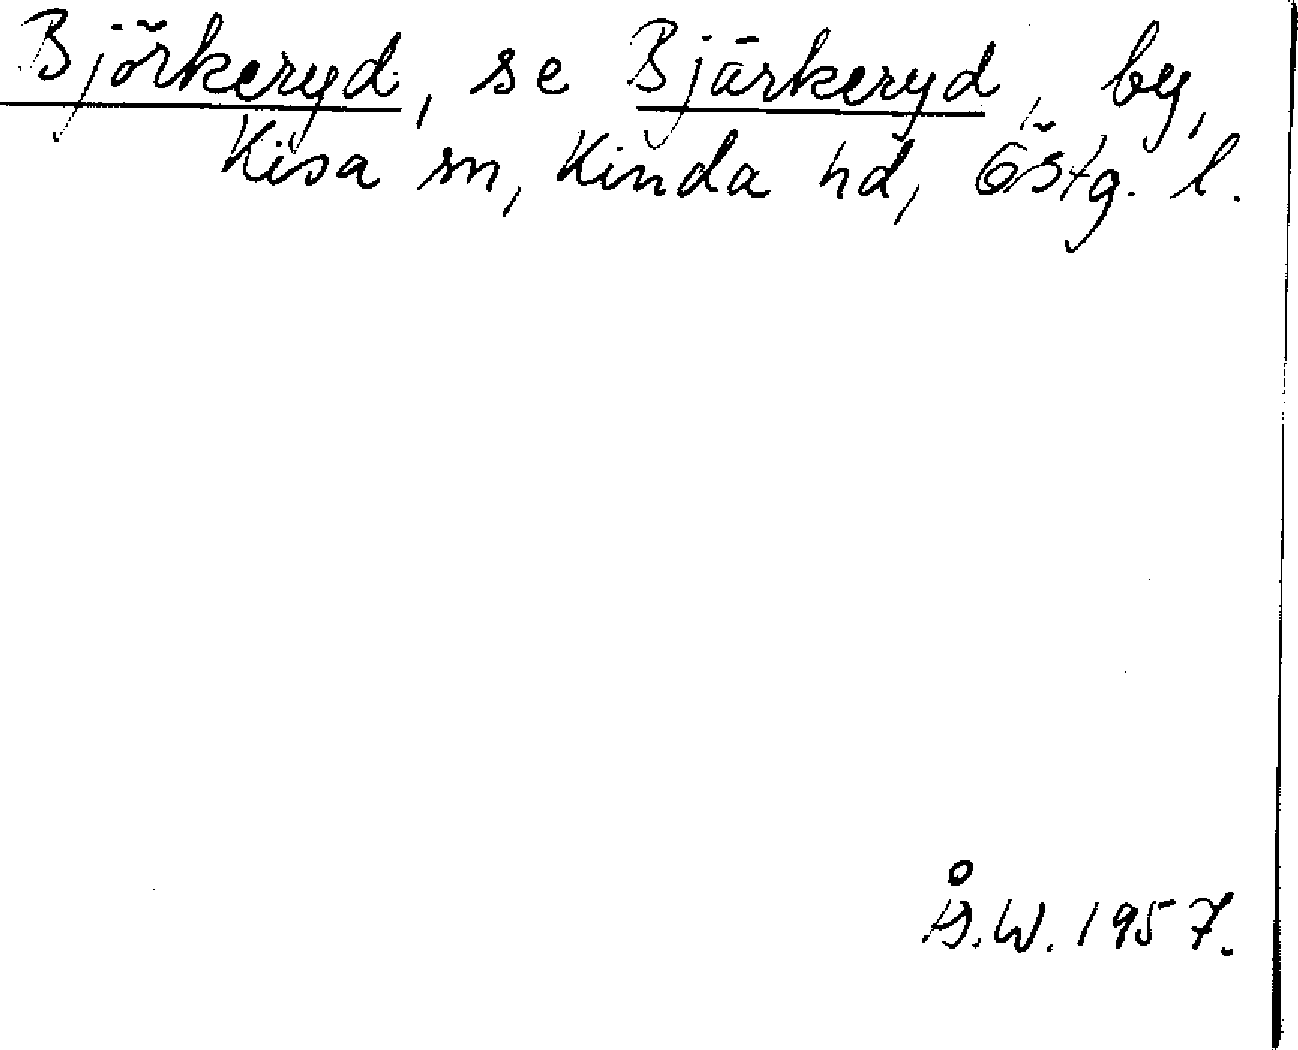 Björkeryd, se Bjärkeryd, by,
Kisa sn, Kinda hd, Östg. l.
Å.W. 1957.